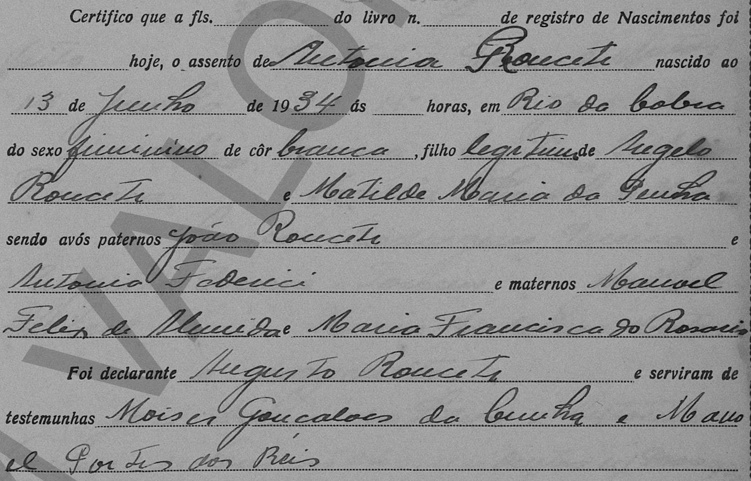 Certifico que a fls. do livro n. de registro de Nascimentos foi
hoje, o assento de Antonia Roncete nascido ao
13 de Junho de 1934 ás horas, em Rio da Cobra
do sexo feminino de côr branca, filho legitim de Angelo
Roncete e Matilde Maria da Penha
sendo avós paternos João Roncete e
Antonia Federici e maternos Manoel
Felix de Almeida e Maria Francisca do Rosario
Foi declarante Augusto Roncete e serviram de
testemunhas Moises Goncalves da Cunha e Mano
el Portes dos Reis
VALO